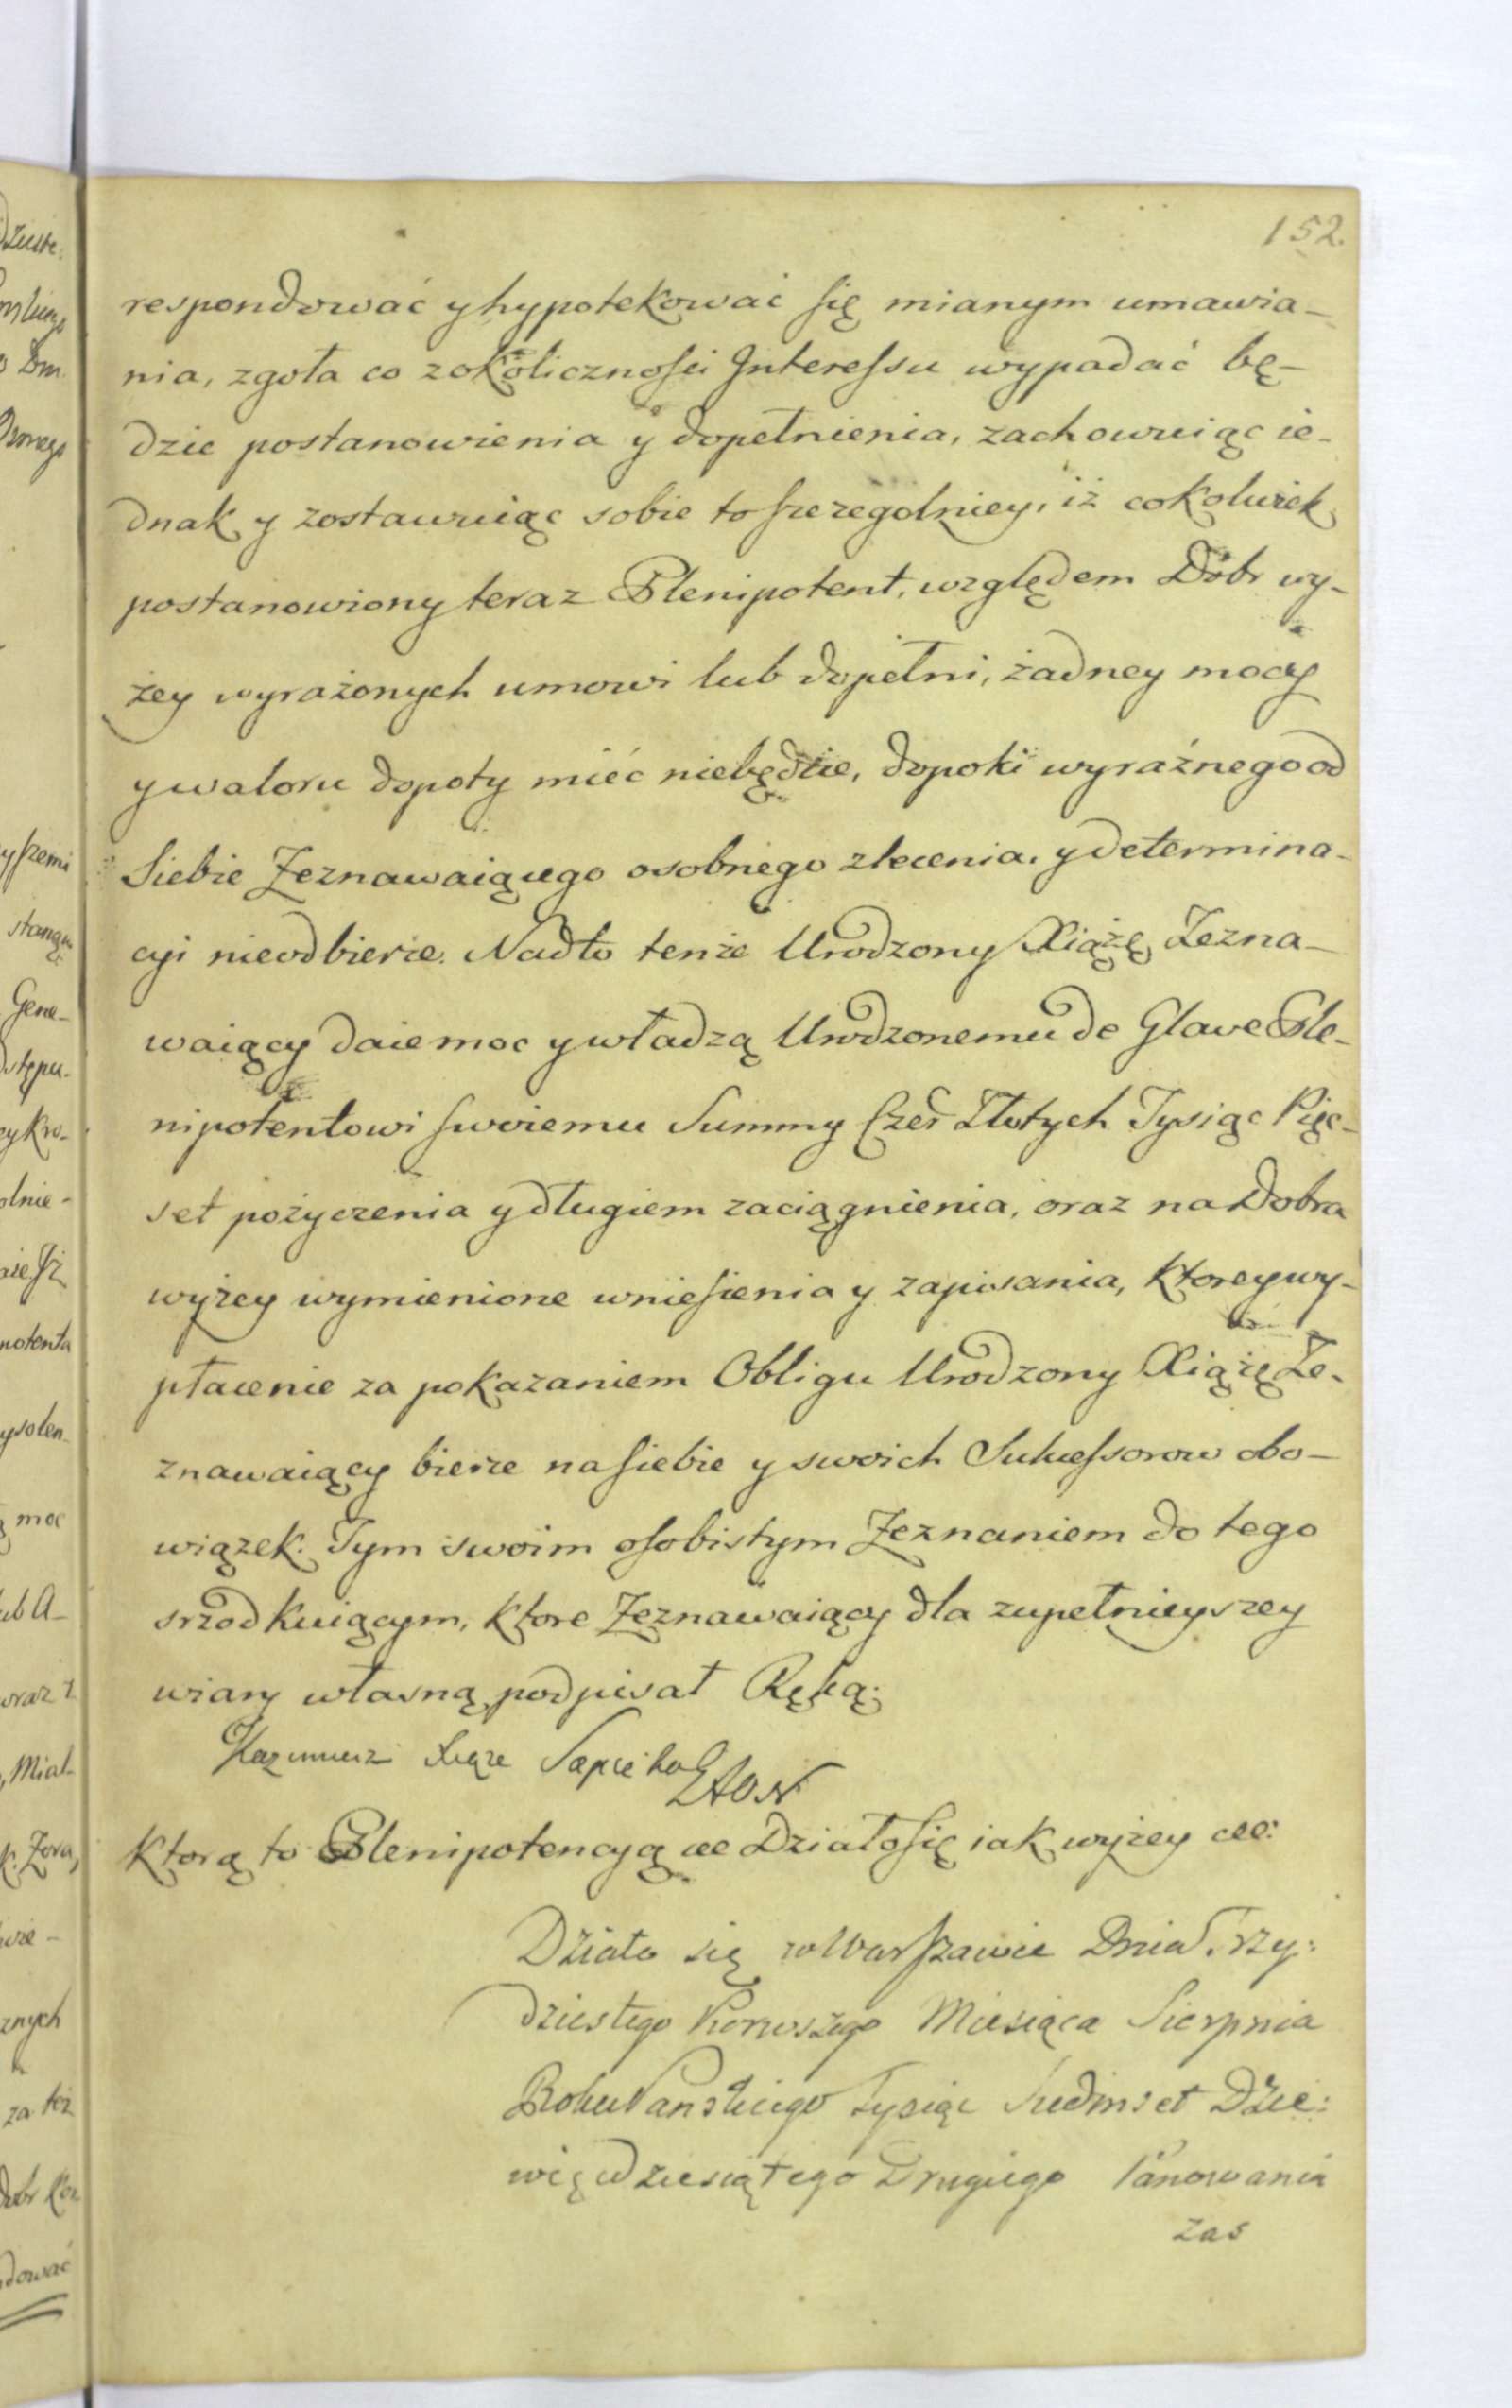 152.
respondować y hypotekować się mianym umawia-
nia, zgoła co z okoliczności Interessu wypadać bę-
dzie postanowienia y dopełnienia, zachowuiąc ie-
dnak y zostawuiąc sobie to szczegolniey, iż cokolwiek
postanowiony teraz Plenipotent, względem Dobr wy-
żey wyrażonych umowi lub dopełni, żadney mocy
y waloru dopoty mieć niebędzie, dopoki wyraźnego od
Siebie Zeznawaiącego osobnego zlecenia, y determina-
cyi nieodbierze. Nadto tenże Urodzony Xiążę Zezna-
waiący daie moc y władzą Urodzonemu de Glave Ple-
nipotentowi swoiemu Summy Czer Złotych Tysiąc Pięc-
set pożyczenia y długiem zaciągnienia, oraz na Dobra
wyżey wymienione wniesienia y zapisania, ktorey wy-
płacenie za pokazaniem Obligu Urodzony Xiążę Ze-
znawaiący bierze na siebie y swoich Sukcessorow obo-
wiązek. Tym swoim osobistym Zeznaniem do tego
srzodkuiącym, ktore Zeznawaiący dla zupełnieyszey
wiary własną podpisał Ręką.
Kazimierz Xiąze Sapieha
Ktorą to Plenipotencyą &c Działo się iak wyżey &c:
Działo się w Warszawie Dnia Trzy:
dziestego Pierwszego Miesiąca Sierpnia
Roku Panskiego Tysiąc Siedmset Dzie:
więćdziesiątego Drugiego Panowania
zas
dzieste.
o Dm.
yszemi
Gene-
stępu-
ey Kro-
olnie-
potenta
moc
ub A-
oraz z
, Mial-
wie-
znych
za też
dować